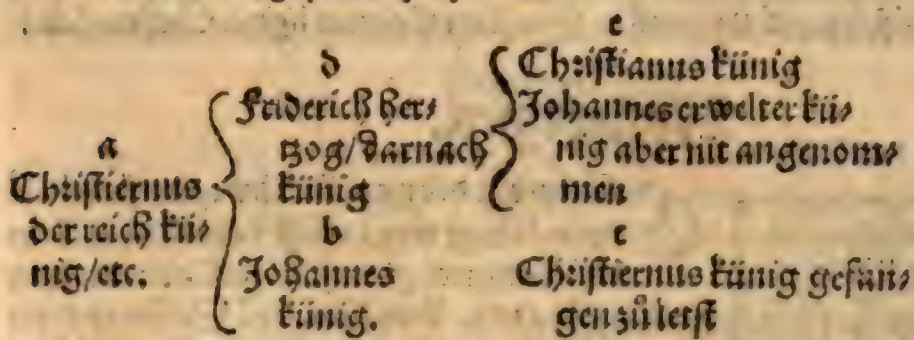 a
Christiernus
der reich kü⸗
nig/etc.
d
Friderich her⸗
tzog/darnach
künig
b
Johannes
künig.
e
Christianus künig
Johannes erwelter kü⸗
nig aber nit angenom⸗
men
c
Christiernus künig gefän⸗
gen zů letst